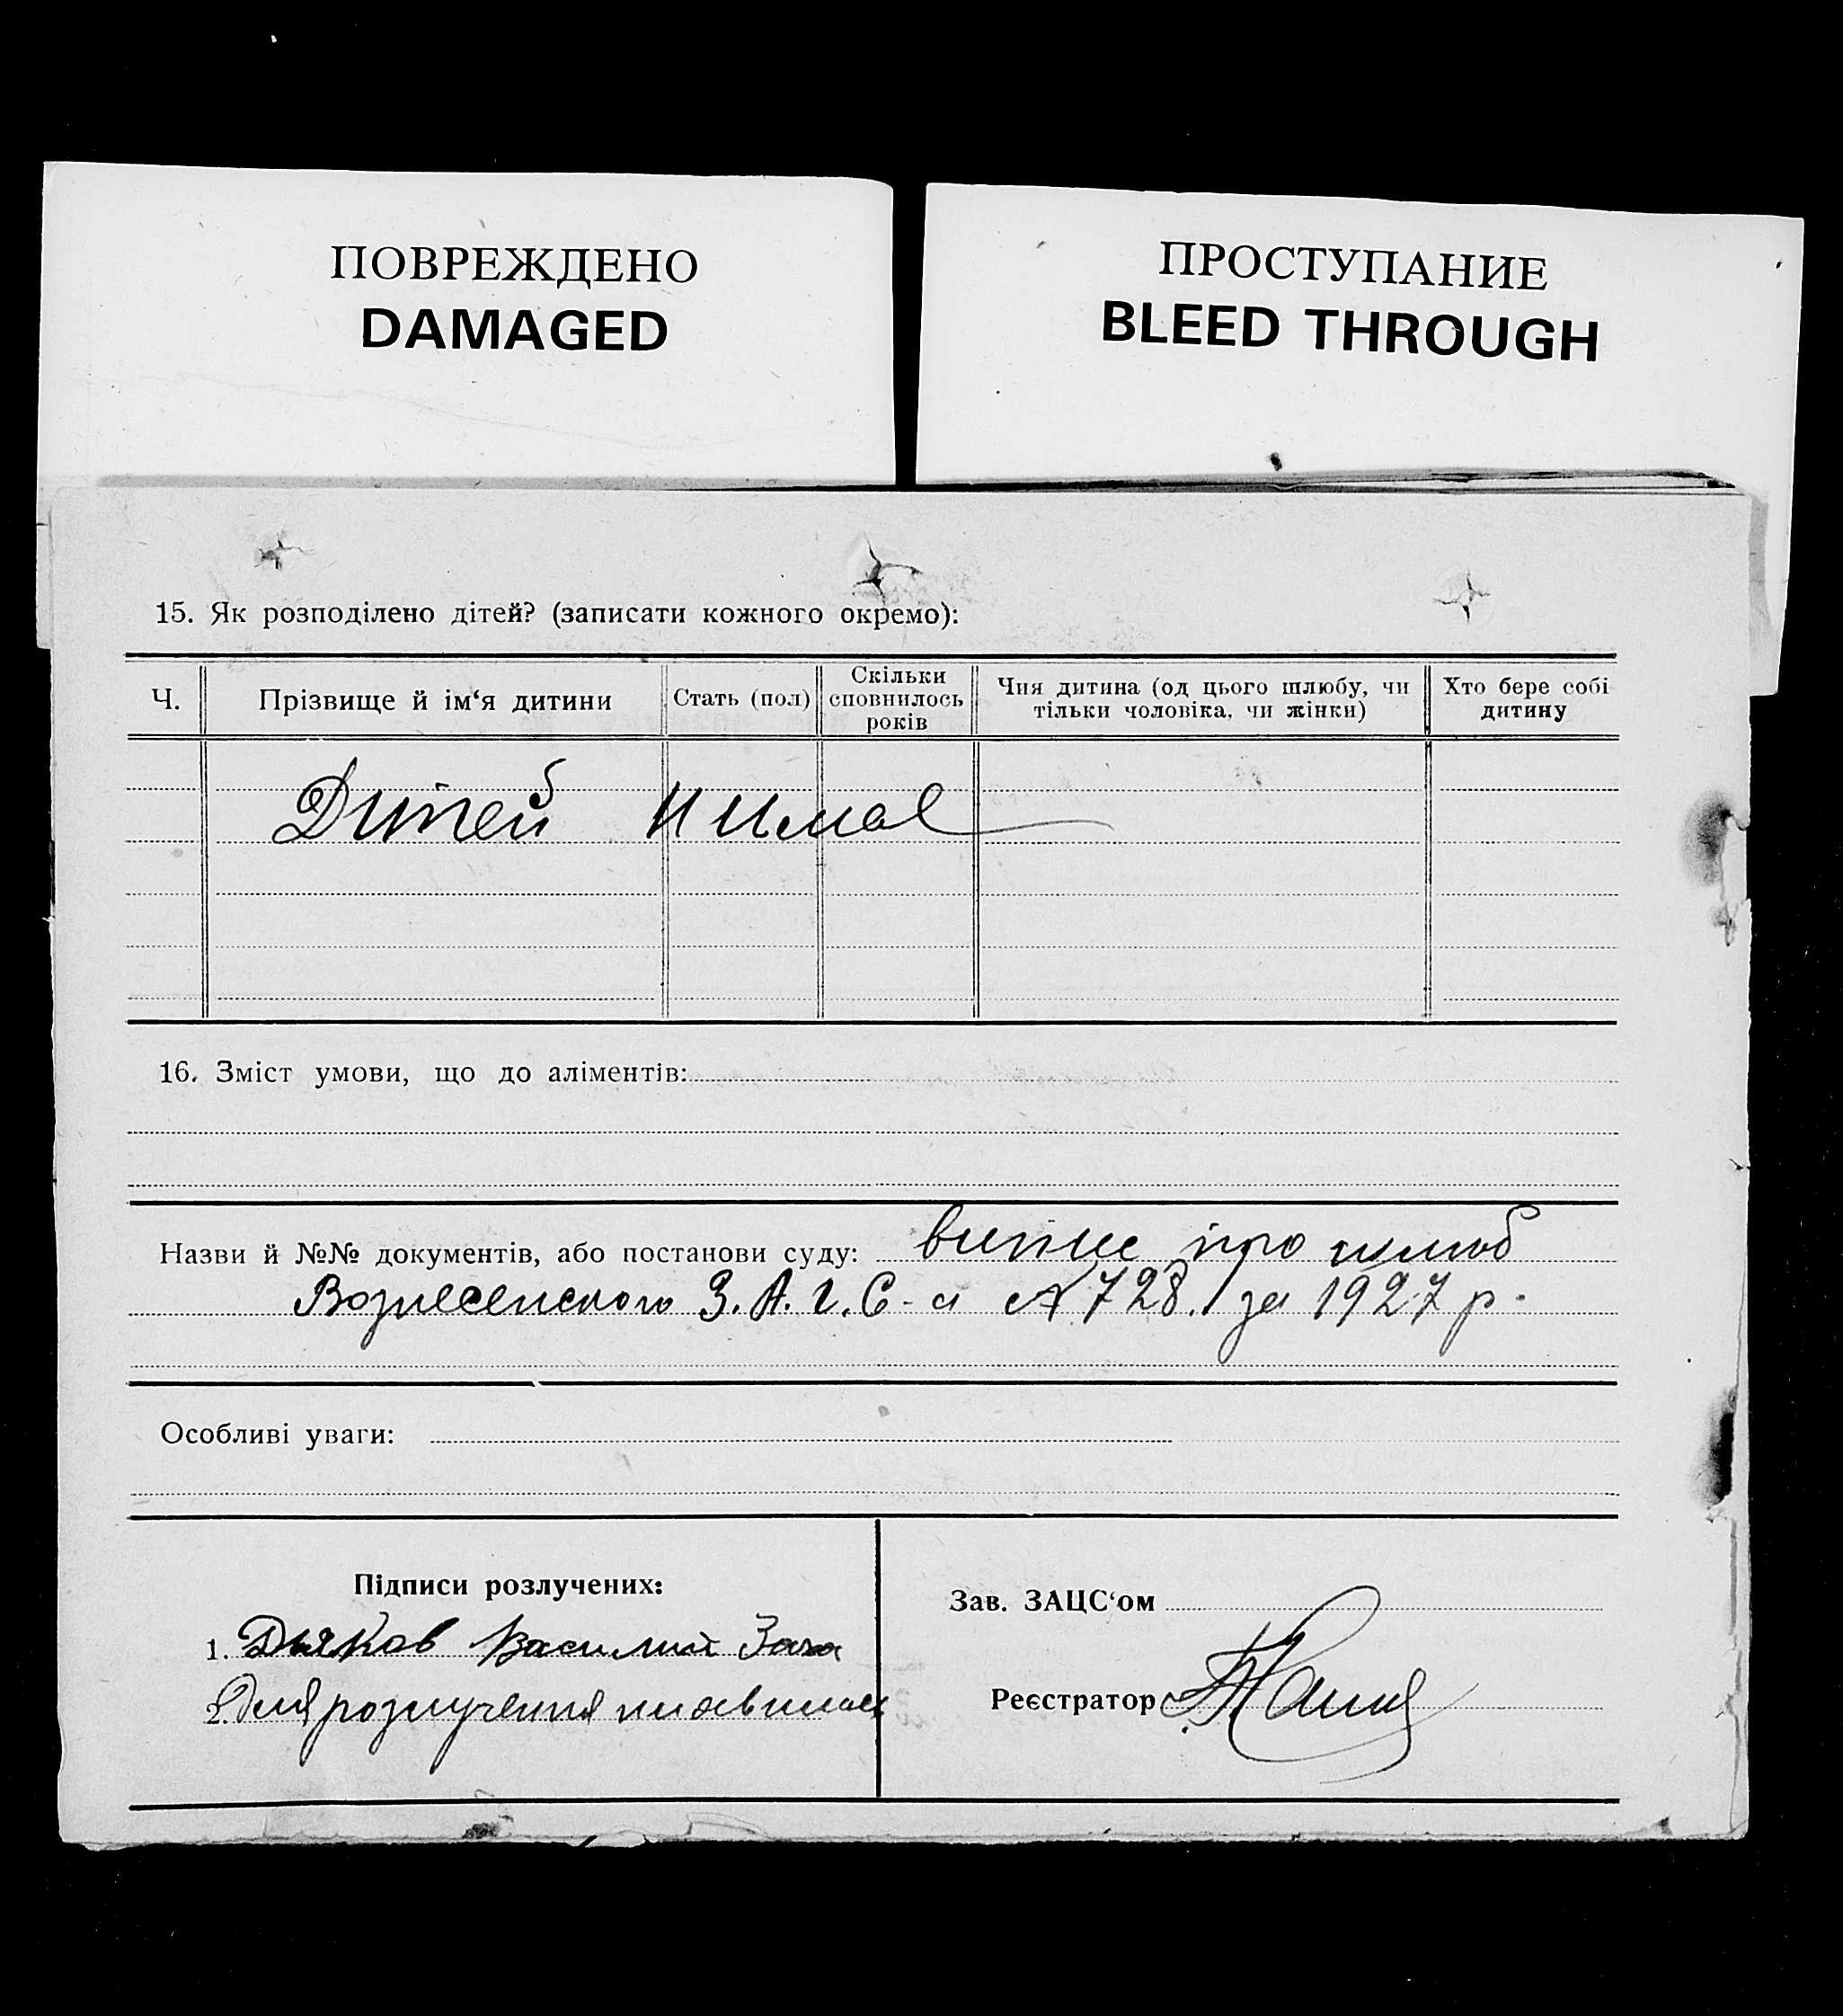 ПОВРЕЖДЕНО
DAMAGED
ПРОСТУПАНИЕ
BLEED THROUGH
15. Як розподілено дітей? (записати кожного окремо):
Ч.
Прізвище й ім‘я дитини
Стать (пол)
Скільки
сповнилось
років
Чия дитина (од цього шлюбу, чи
тільки чоловіка, чи жінки)
Хто бере собі
дитину
Дитей нимає
16. Зміст умови, що до аліментів:
Назви й №№ документів, або постанови суду: випис про шлюб
Вознесенского З.А.Г.С-а № 728. за 1927 р.
Особливі уваги:
Підписи розлучених:
1. Дьяков Василий Заха
2. Для розлучення
Зав. ЗАЦС‘ом
Реєстратор